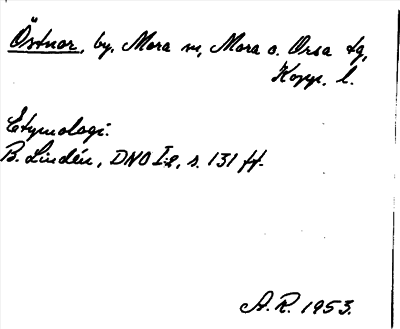 Östnor, by, Mora sn, Mora o. Orsa tg,
Kopp. l.
Etymologi.
B. Lindén, DNO I:2, s. 131 ff.
A. R. 1953.